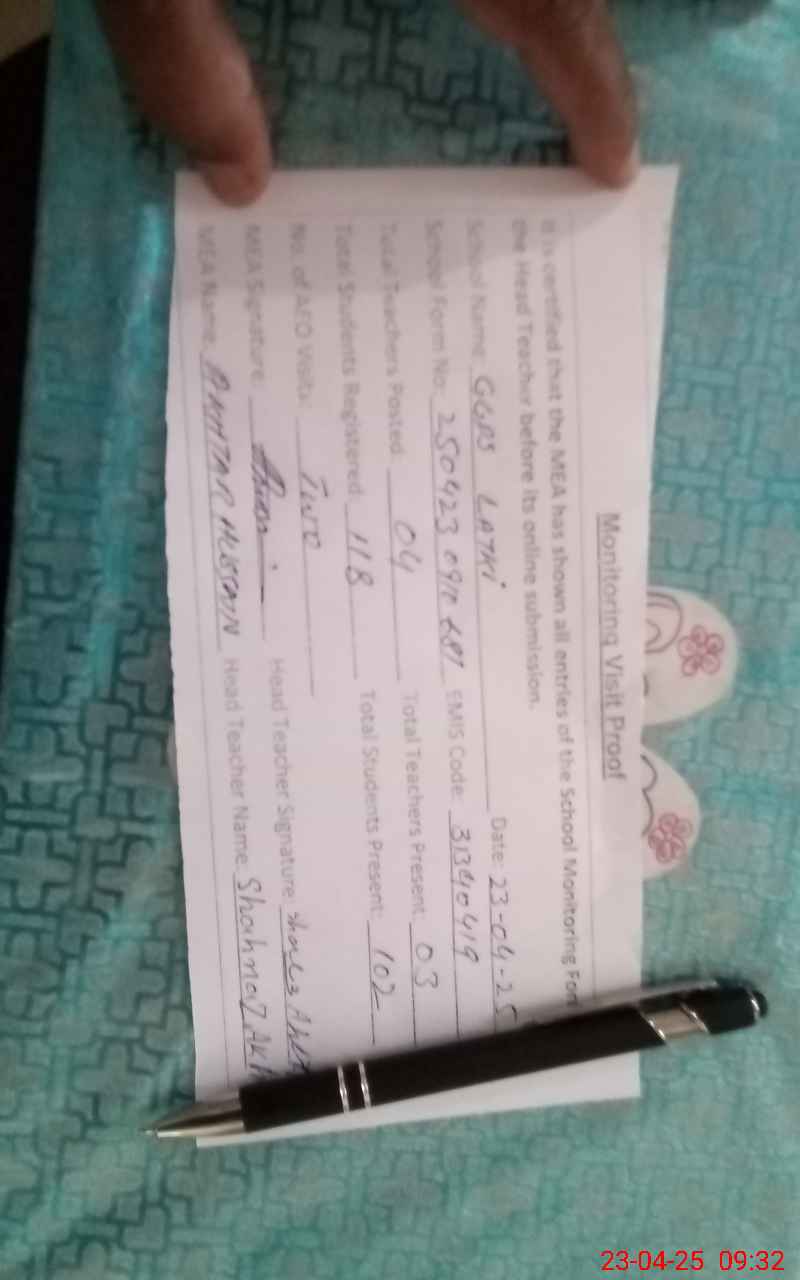 Monitoring Visit Proof
It is certified that the MEA has shown all entries of the School Monitoring Form
the Head Teacher before its online submission.
School Name: GGPS LATKI Date: 23-04-25
School Form No: 250423 0910 EMIS Code: 31340419
Total Teachers Posted: 04 Total Teachers Present: 03
Total Students Registered: 118 Total Students Present: 102
No. of AEO Visits: Two
MEA Signature: Head Teacher Signature:
MEA Name: AKHTAR HUSSAIN Head Teacher Name: Shahnaz
23-04-25 09:32